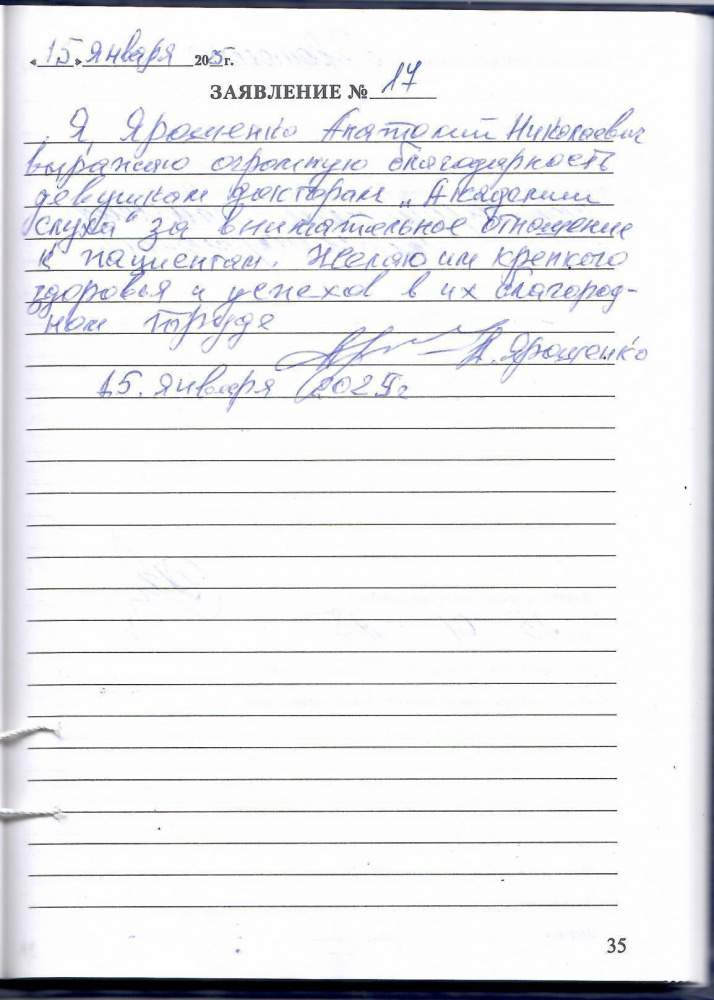 «15» января 2025г.
ЗАЯВЛЕНИЕ № 17
Я, Ярошенко Анатолий Николаевич
выражаю огромную благодарность
девушкам докторам „Академии
слуха" за внимательное отношение
к пациентам. Желаю им крепкого
здоровья и успехов в их благород-
ном труде
А. Ярошенко
15. января 2025г
35